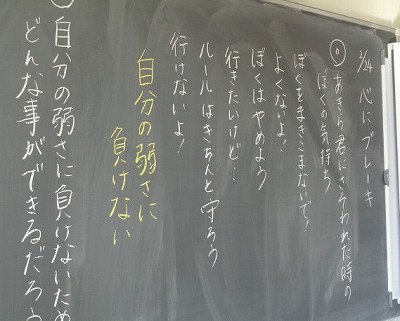 2/24 心にブレーキ
◎あきら君にさそわれた時の
ぼくの気持ち
ぼくをまきこまないで!
よくないよ!
ぼくはやめよう
行きたいけど…
ルールはきちんと守ろう
行けないよ!
自分の弱さに
負けない
自分の弱さに負けないため
どんな事ができるだろう